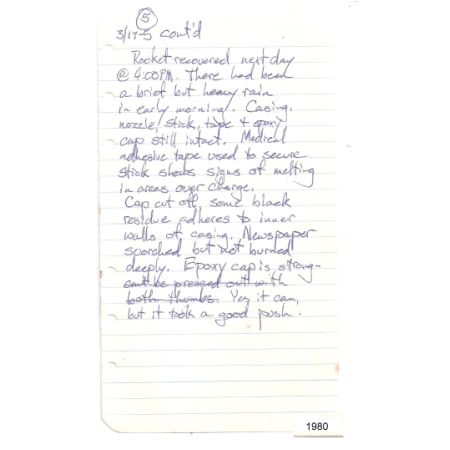 5
3/17-5 cont'd
Rocket recovered next day
@ 4:00PM. There had been
a brief but heavy rain
in early morning. Casing,
nozzle, stick, tape & epoxy
cap still intact. Medical
adhesive tape used to secure
stick shows signs of melting
in areas over charge.
Cap cut off, some black
residue adheres to inner
walls of casing. Newspaper
scorched but not burned
deeply. Epoxy cap is strong-
can't be pressed out with
both thumbs. Yes it can,
but it took a good push.
1980